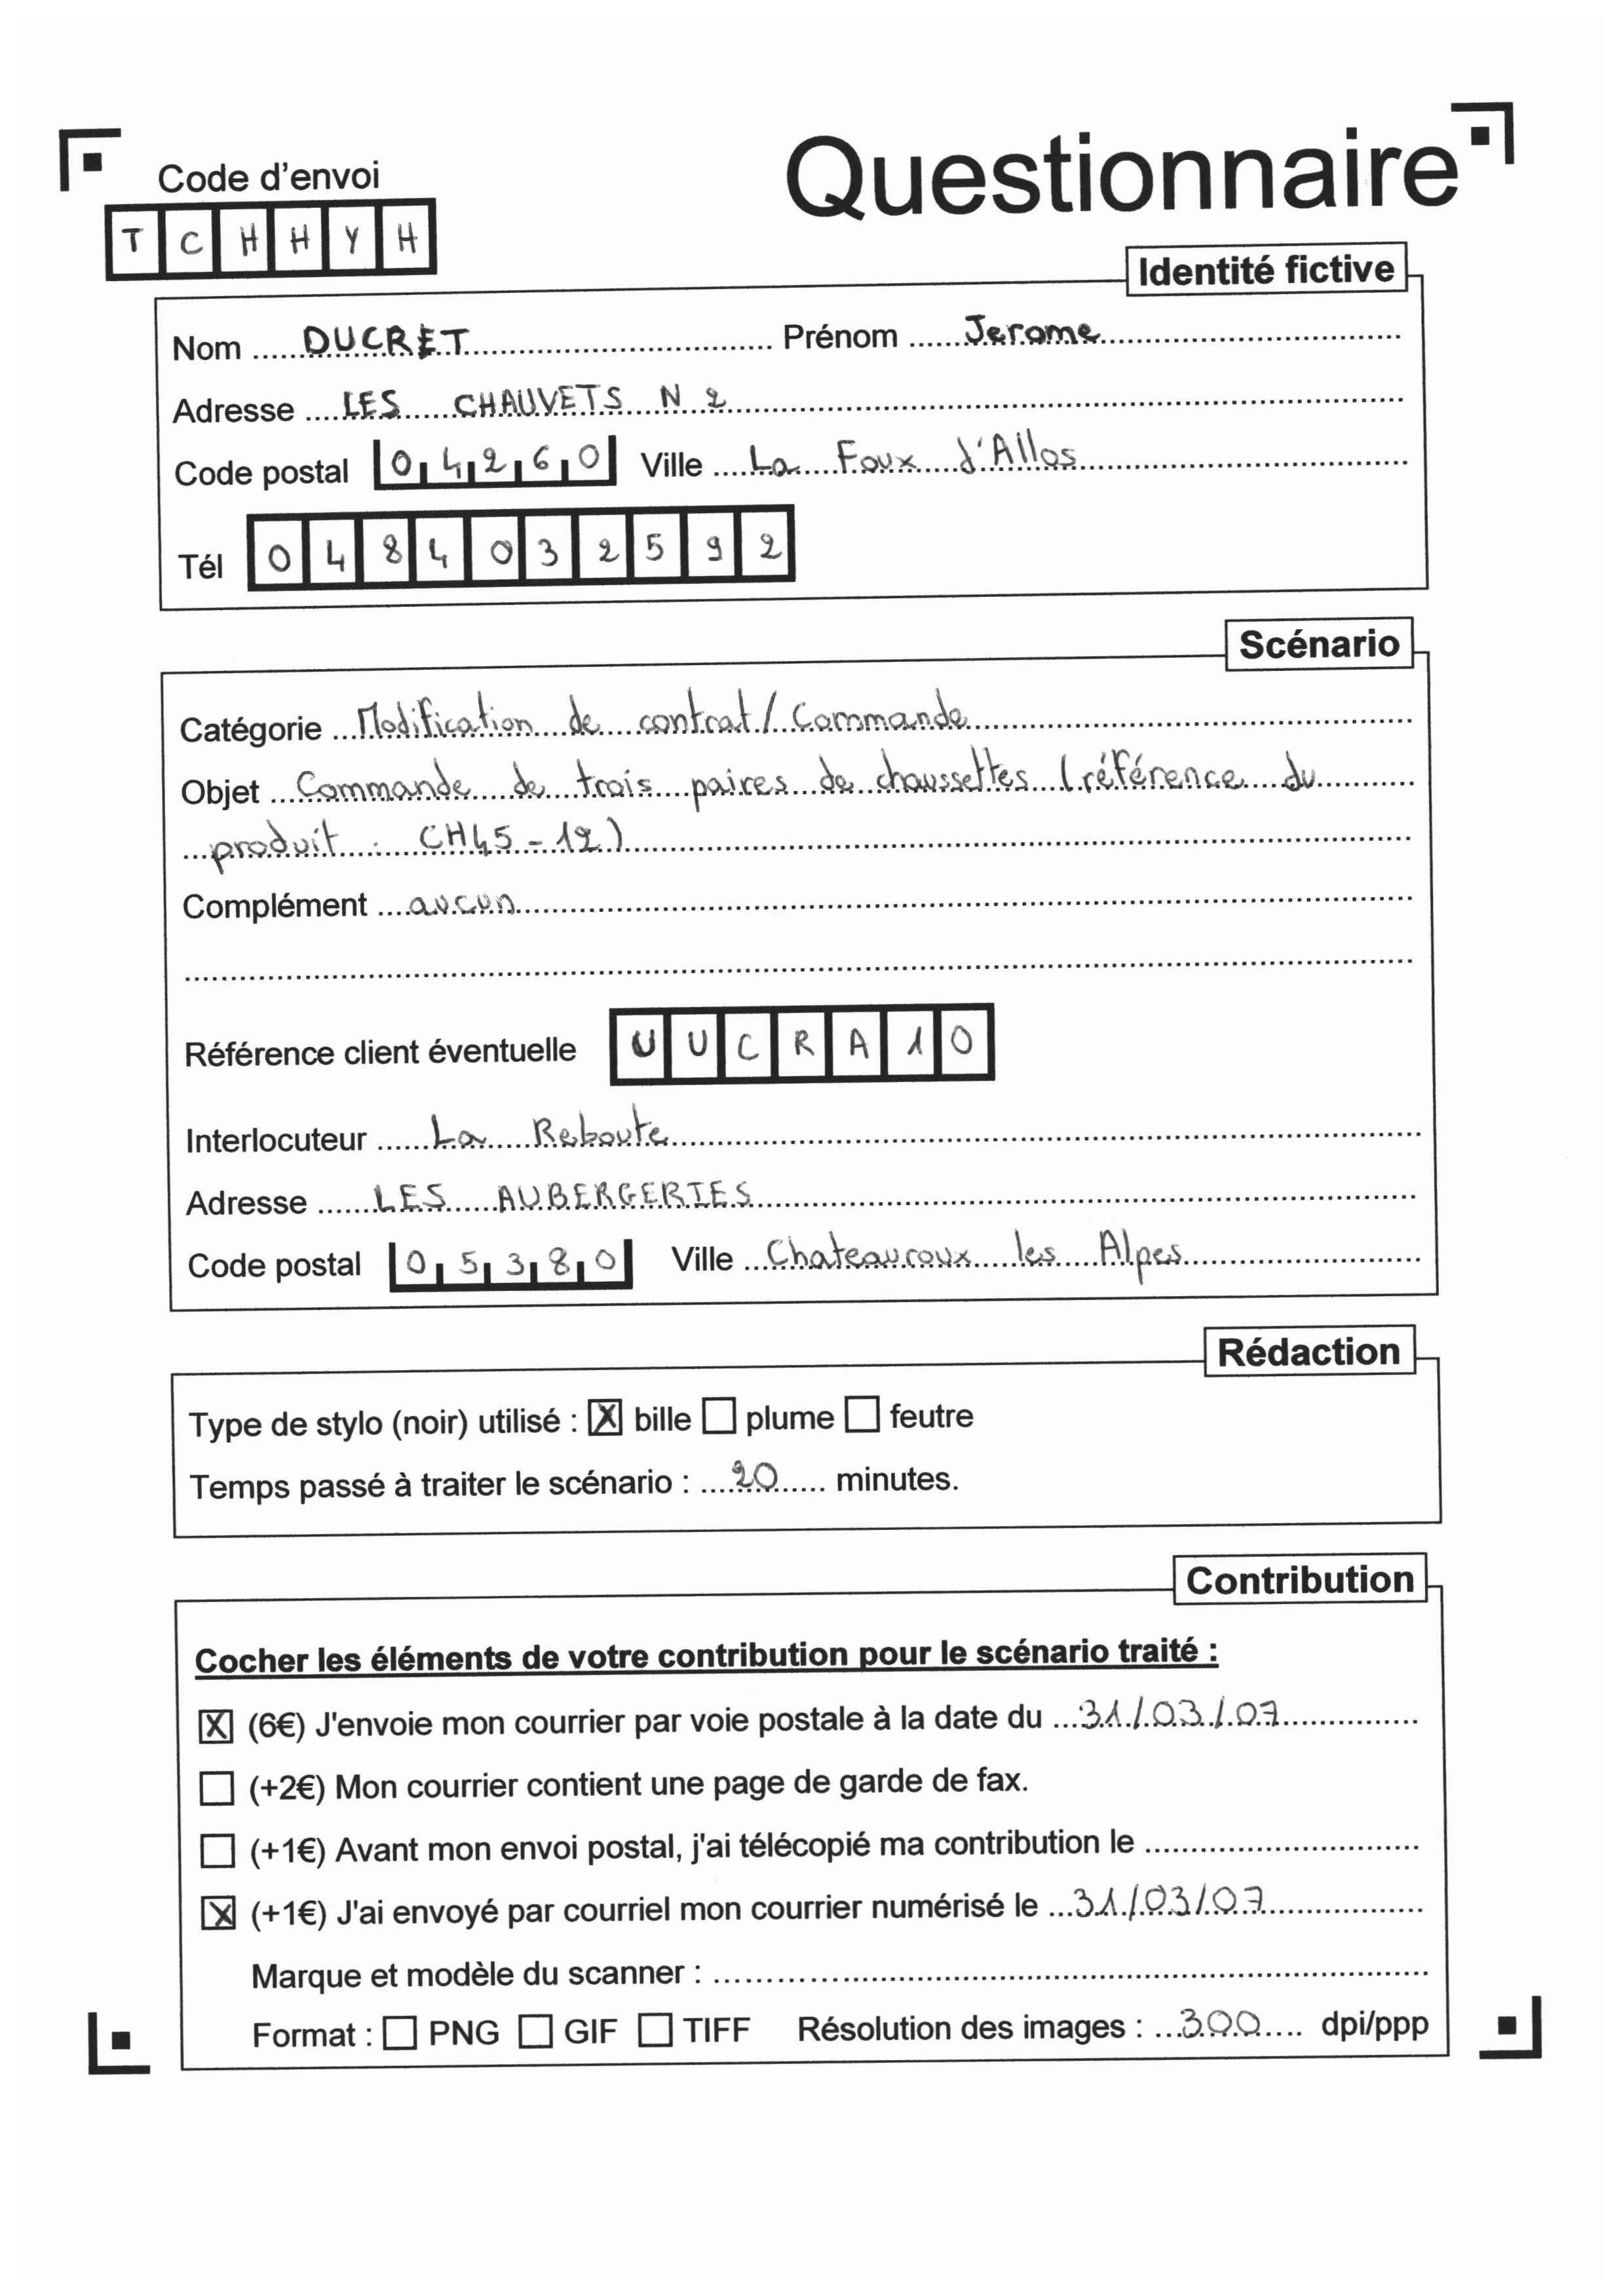 Questionnaire
Code d'envoi
T C H H Y H
Identité fictive
Nom DUCRET Prénom Jerome
Adresse LES CHAUVETS N 2
Code postal 04260 Ville La Foux d'Allos
Tél 0484032592
Scénario
Catégorie Modification de contrat / Commande
Objet Commande de trois paires de chaussettes (référence du
produit : CH45-12)
Complément aucun
Référence client éventuelle UUCRA10
Interlocuteur La Reboute
Adresse LES AUBERGERIES
Code postal 05380 Ville Chateauroux les Alpes
Rédaction
Type de stylo (noir) utilisé : ☒ bille ☐ plume ☐ feutre
Temps passé à traiter le scénario : 20 minutes.
Contribution
Cocher les éléments de votre contribution pour le scénario traité :
☒ (6€) J'envoie mon courrier par voie postale à la date du 31/03/07
☐ (+2€) Mon courrier contient une page de garde de fax.
☐ (+1€) Avant mon envoi postal, j'ai télécopié ma contribution le
☒ (+1€) J'ai envoyé par courriel mon courrier numérisé le 31/03/07
Marque et modèle du scanner :
Format : ☐ PNG ☐ GIF ☐ TIFF Résolution des images : 300 dpi/ppp